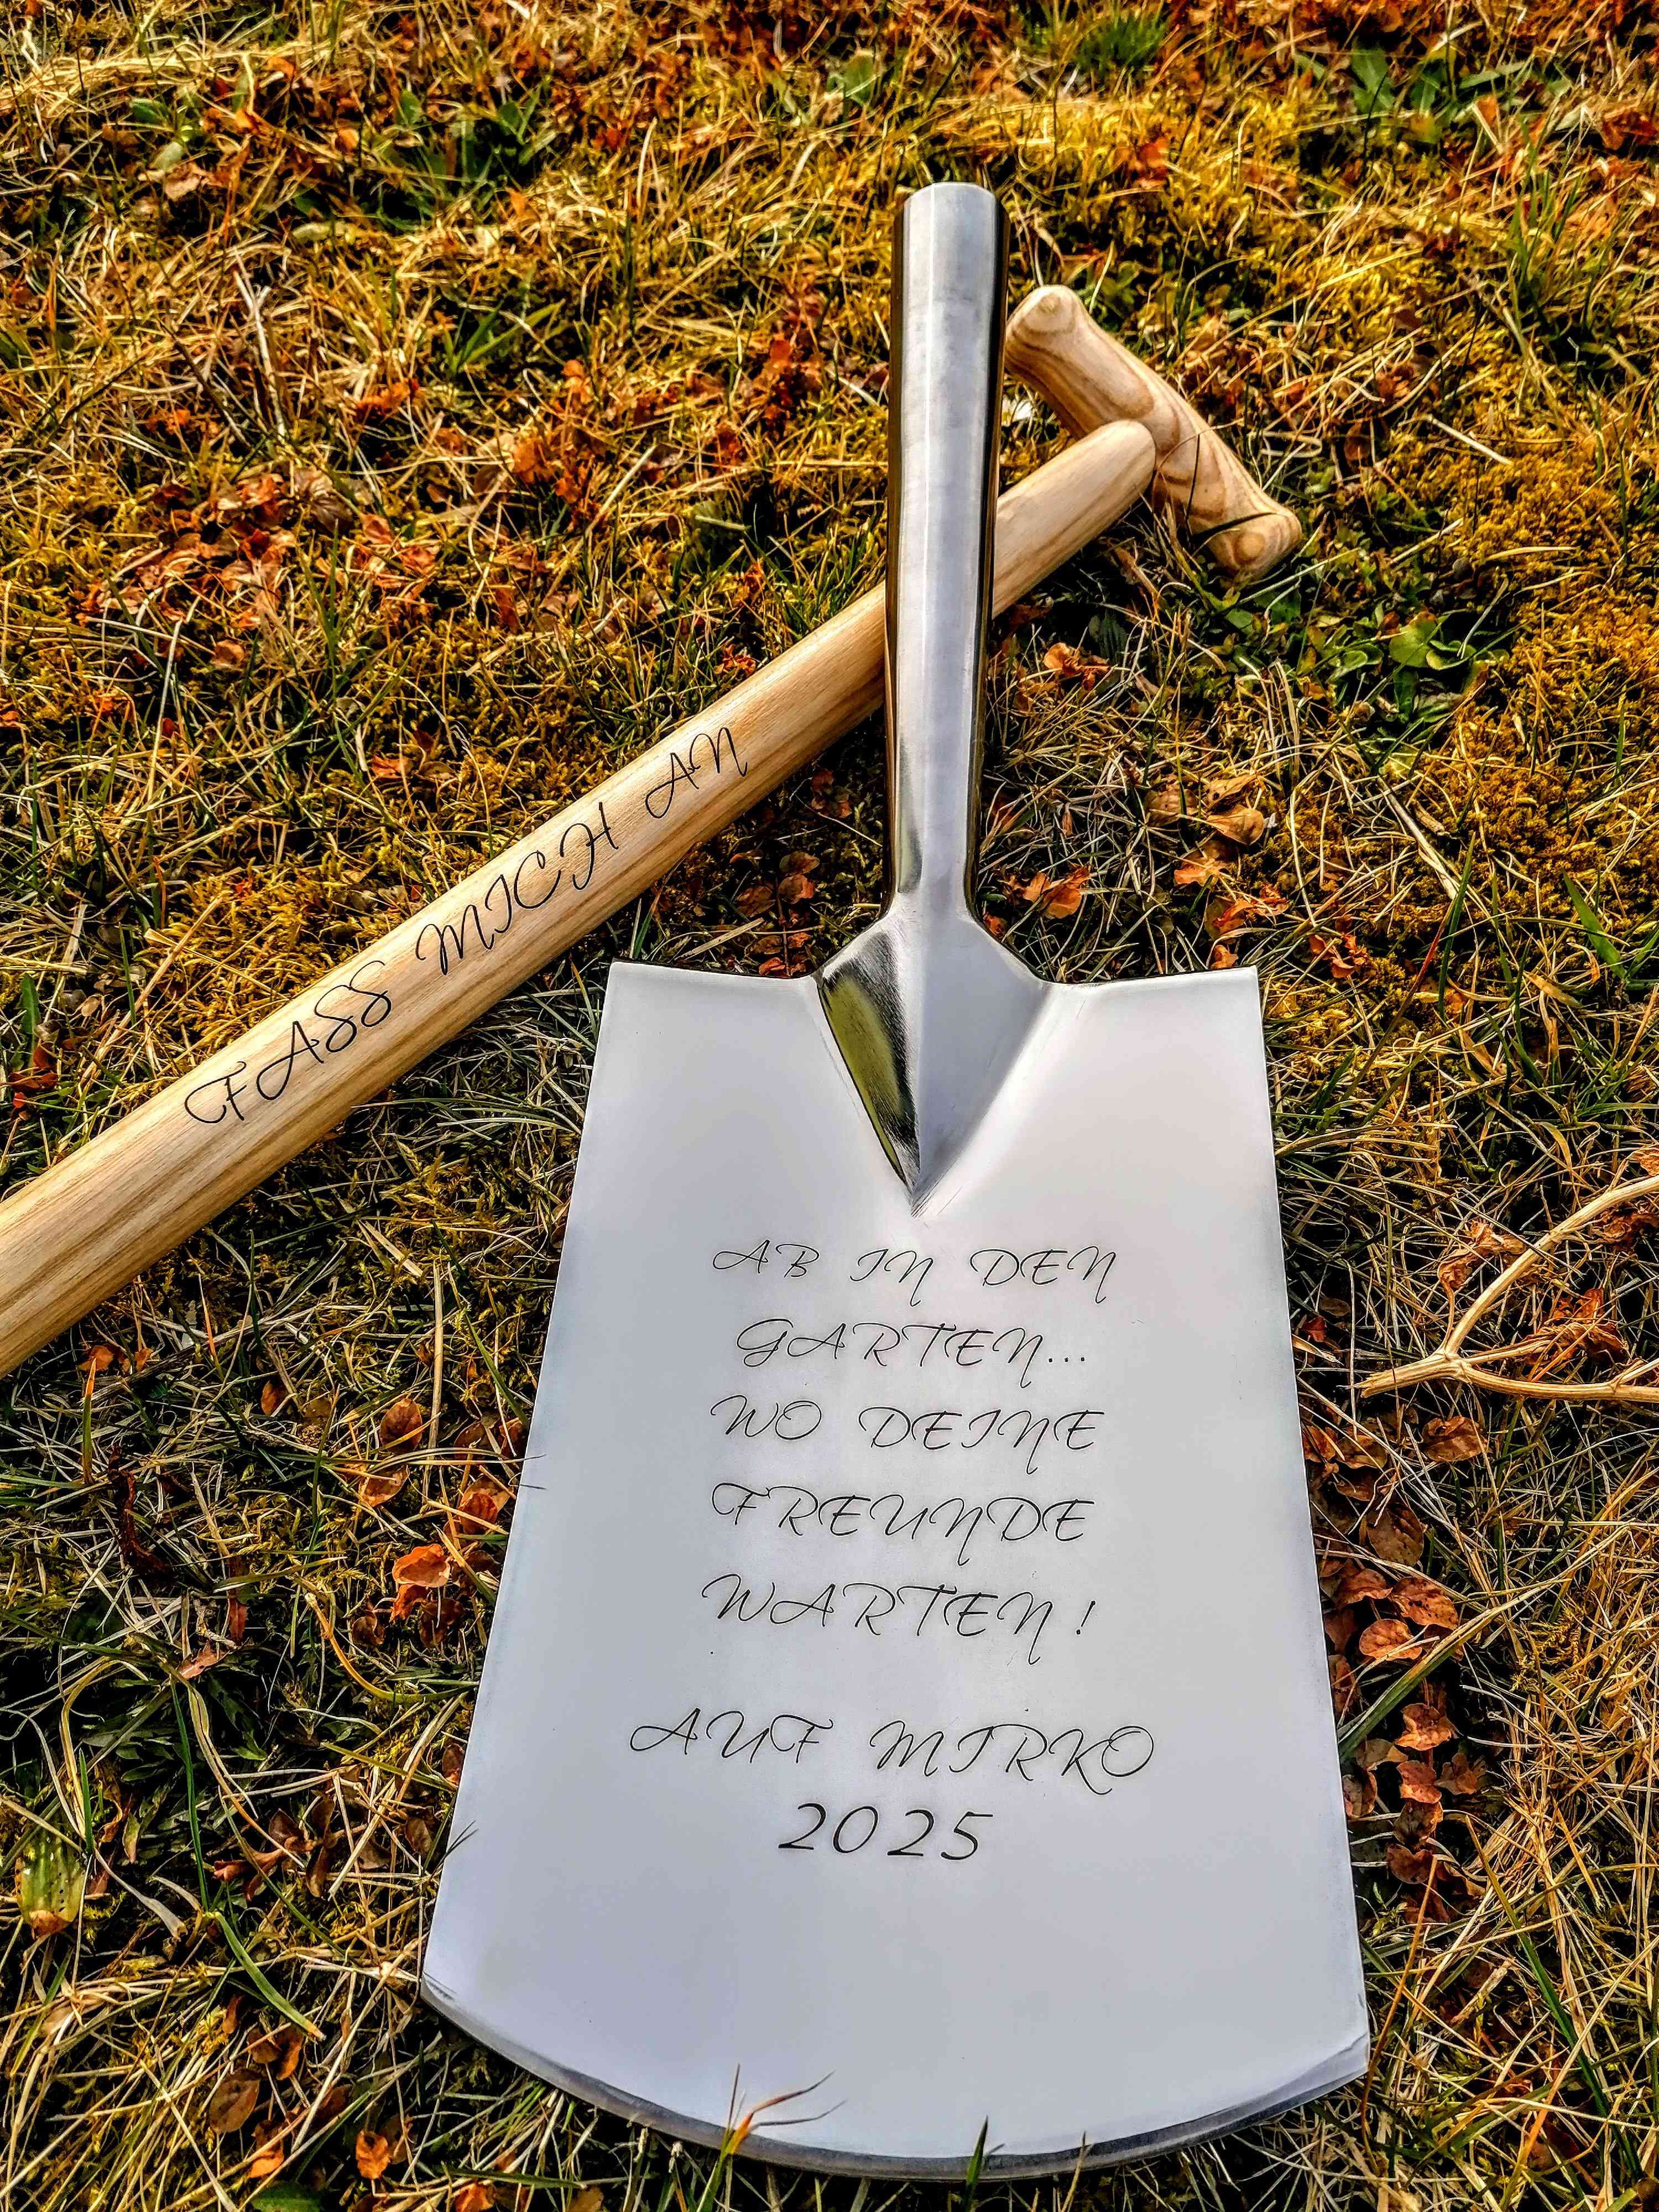 FASS MICH AN
AB IN DEN
GARTEN...
WO DEINE
FREUNDE
WARTEN!
AUF MIRKO
2025